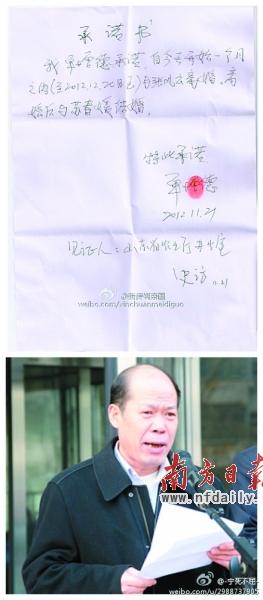 承诺书
我单增德承诺 自今天开始一个月
之内(至2012.12.20日)与
离婚。离
婚后与苏春媛结婚。
特此承诺
单增德
2012.11.21
见证人:山东省农业厅
11.21
weibo.com/xinchuanmeidiguo
南方日报
www.nfdaily.
@-宁死不屈-
weibo.com/u/2988737905